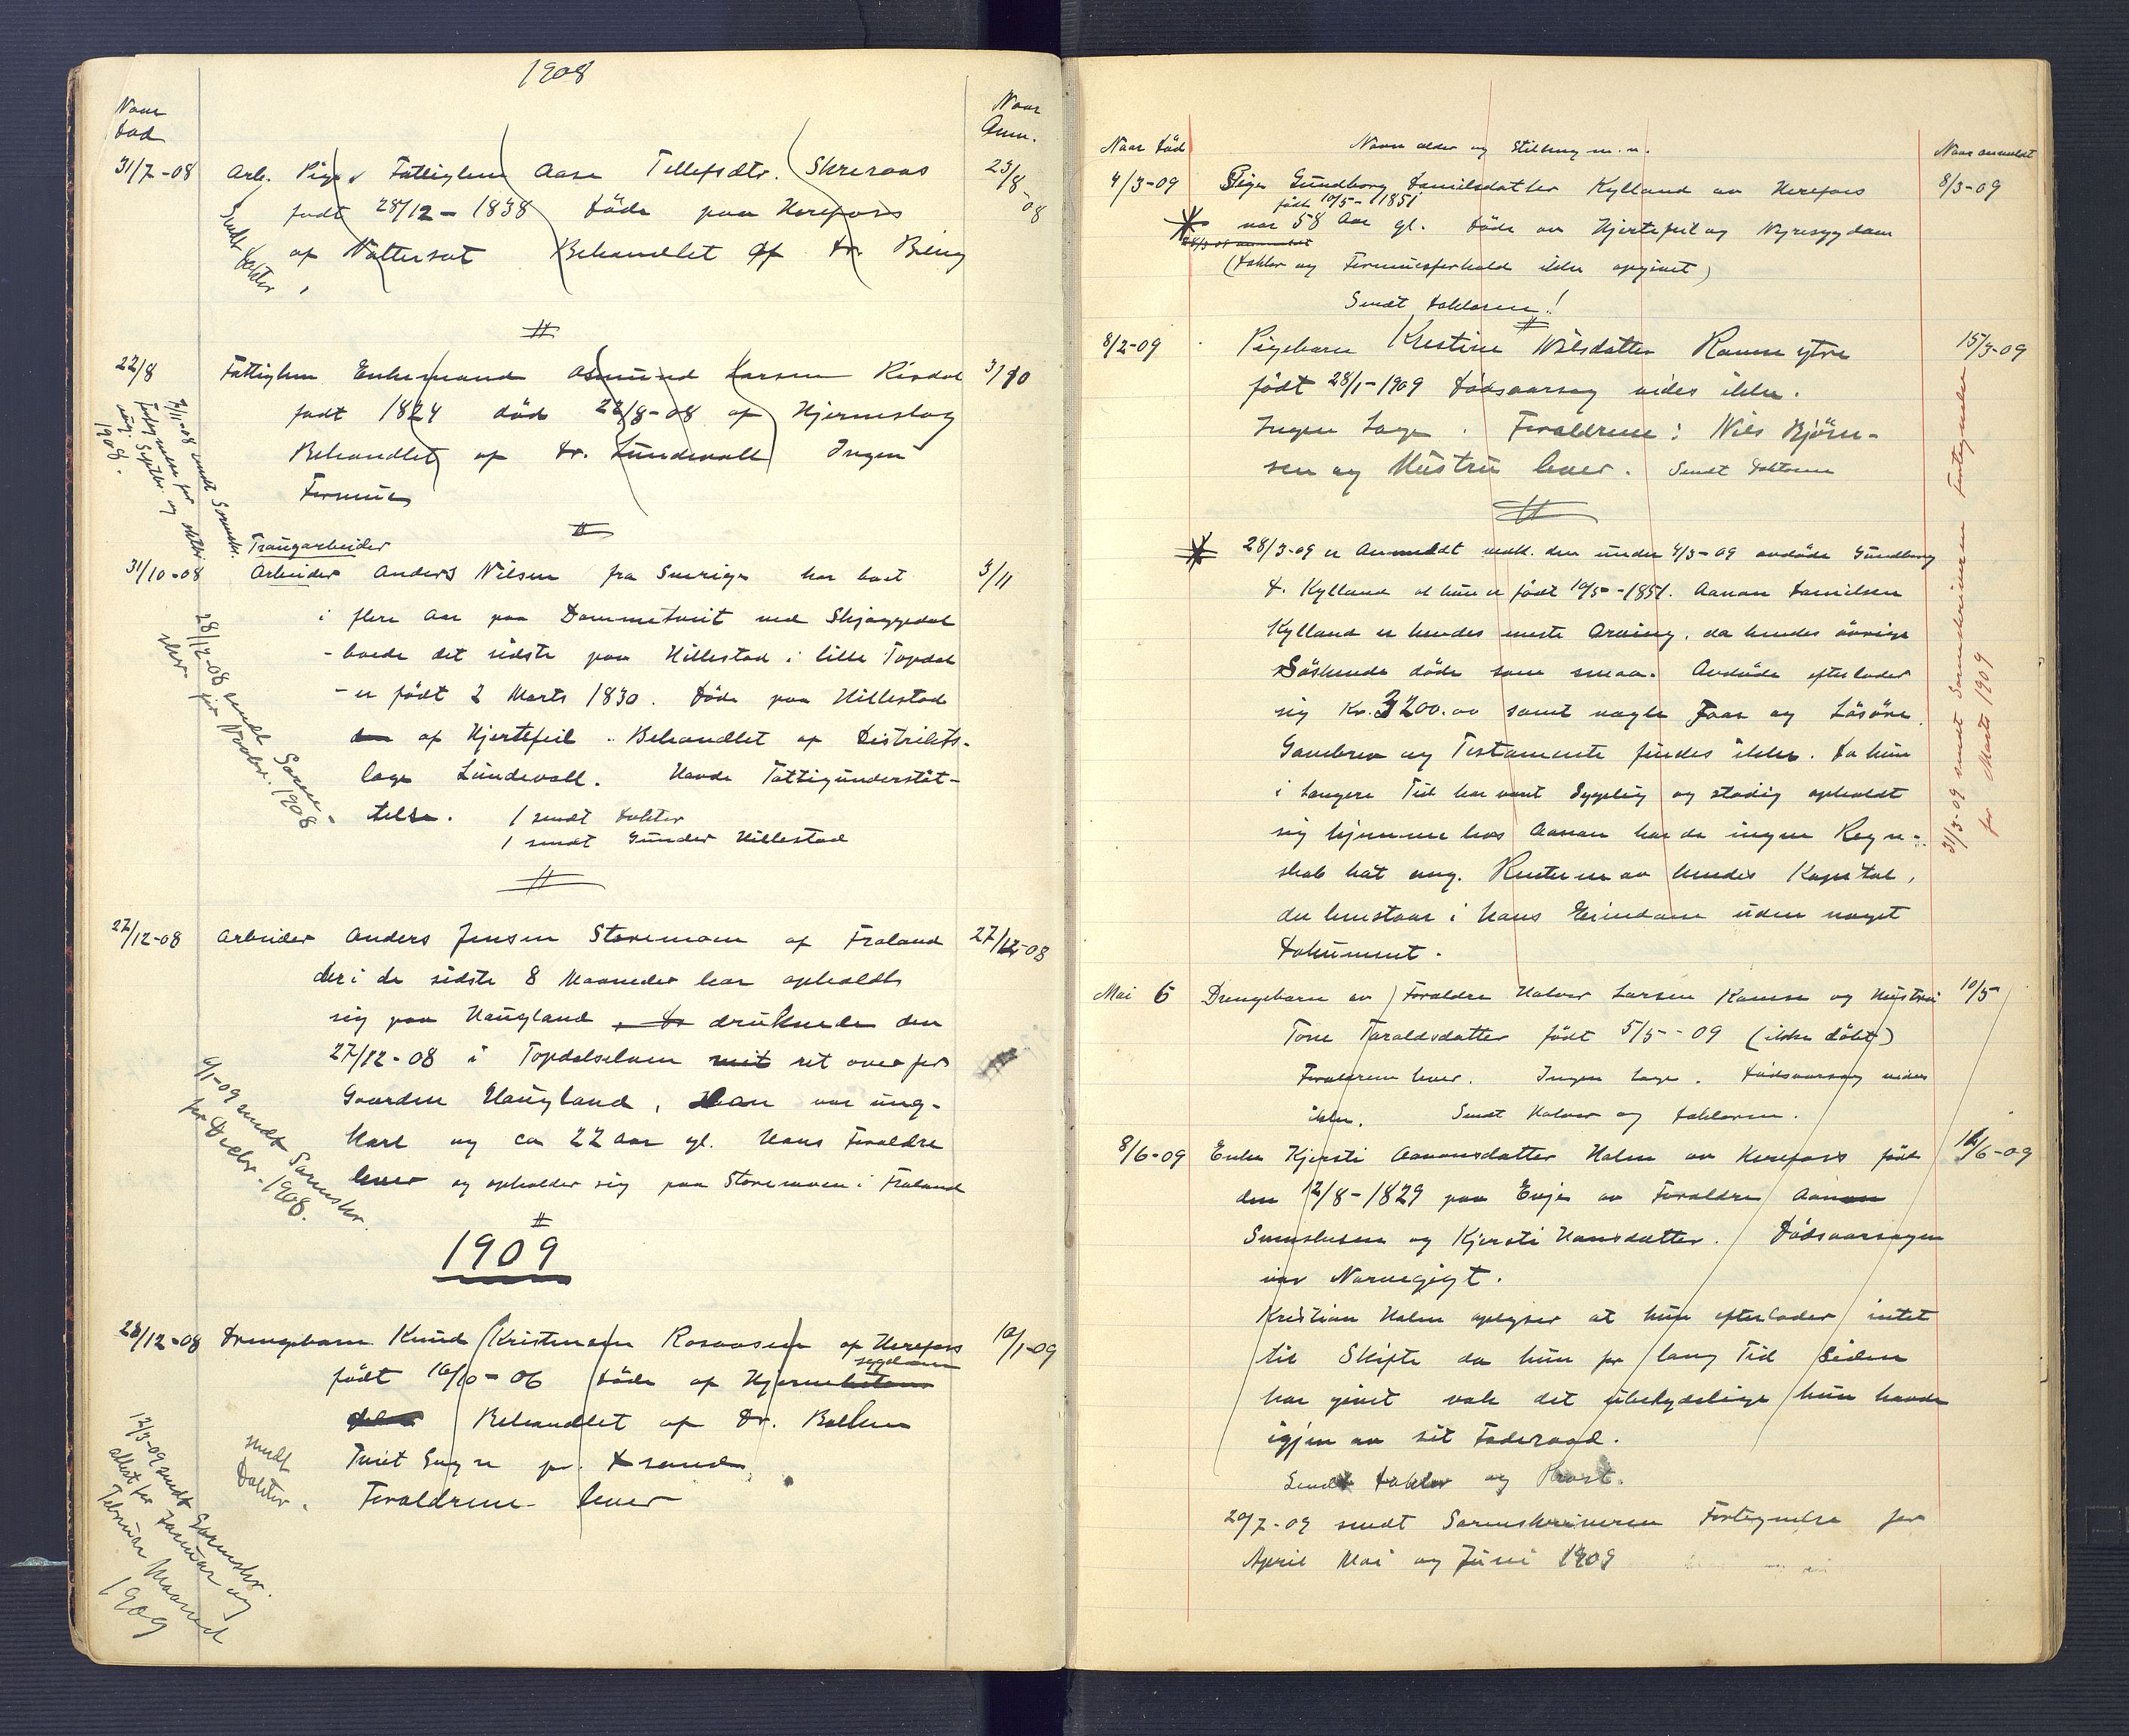 1908
Naar
død
Naar
Anm.
31/7-08 Arb. Pige Fattiglem Aase Tellefsdtr. Skreraas 23/8-08
født 28/12-1838 døde paa Herefoss
af Vattersot Behandlet af Dr. Bing
Sendt
Dokter
22/8 Fattiglem Enkemand Asmund Larsen Risdal 3/10
født 1824 død 22/8-08 af Hjerneslag
Behandlet af Dr. Lundevall Ingen
Formue
7/11-08 sendt Sorenskr.
Fortegnelse for
aug. Septbr. og oktbr.
1908.
Traugarbeider
31/10-08 Arbeider Anders Nilsen fra Sverige har boet 3/11
i flere Aar paa Dommetveit ved Skjæggedal
- boede det sidste paa Hillestad i lille Topdal
- er født 2 Marts 1830. Døde paa Hillestad
af Hjertefeil. Behandlet af Distrikts-
læge Lundevall. Havde Fattigunderstøt-
telse. 1 sendt Dokter
1 sendt Gunder Hillestad
28/12-08 sendt Soren-
skr. for Novbr. 1908
27/12-08 Arbeider Anders Jensen Storemoen af Froland 27/12-08
der i de sidste 8 Maaneder har opholdt
sig paa Haugland druknede den
27/12-08 i Topdalselven ret over for
Gaarden Haugland, Han var ung-
karl og ca 22 aar gl. Hans Foraldre
lever og opholder sig paa Storemoen i Froland
6/1-09 sendt Sorenskr.
for Decbr. 1908.
1909
28/12-08 Drengebarn Knud Kristensen Rosaasen af Herefoss 10/1-09
sygdom
født 16/10-06 døde af Hjerne
Behandlet af Dr. Balken
Tveit Sogn pr. Xsand
Foraldrene lever
sendt
Dokter.
12/3-09 sendt Sorenskr.
attest for Januar og
Februar Maaned
1909
Naar død Navn alder og Stilling m. m. Naar anmeldt
4/3-09 Pige Gundborg Danielsdatter Kylland av Herefoss 8/3-09
født 10/5-1851
var 58 Aar gl. døde av Hjertefeil og Nyresygdom
28/3-09 anmeldt
(Dokter og Formuesforhold ikke opgivet)
Sendt Doktoren!
8/2-09 Pigebarn Kristine Nilsdatter Ramse ytre 15/3-09
født 28/1-1909 Dødsaarsag vides ikke.
Ingen Læge. Foraldrene: Nils Bjørn-
sen og Hustru lever. Sendt Doktoren
28/3-09 er Anmeldt vedk. den under 4/3-09 avdøde Gundborg
D. Kylland at hun er født 10/5-1851. Aanon Danielsen
Kylland er hendes eneste Arving, da hendes øvrige
Søskende døde som smaa. Avdøde efterlader
sig Kr. 3200.00 samt nogle Faar og Løsøre.
Gavebrev og Testamente findes ikke. Da hun
i længere Tid har været Sygelig og stadig opholdt
sig hjemme hos Aanon har de ingen Regn-
skab hat ang. Renterne av hendes Kapital,
der henstaar i Hans Eiendom uden noget
Dokument.
31/3-09 sendt Sorenskriveren Fortegnelse
for Marts 1909
Mai 6 Drengebarn av Foraldre Halvor Larsen Ramse og Hustru 10/5
Tone Taraldsdatter født 5/5-09 (ikke døbt)
Foraldrene lever. Ingen Læge. Dødsaarsag vides
ikke. Sendt Halvor og Doktoren.
8/6-09 Enke Kjersti Aanonsdatter Holm av Herefoss født 12/6-09
den 12/8-1829 paa Evje av Foraldre Aanon
Svenskesen og Kjersti Hansdatter. Dødsaarsagen
var Nervegigt.
Kristian Holm oplyser at hun efterlader intet
til Skifte da hun for lang Tid siden
har givet vak det ubetydelige hun havde
igjen av sit Foderaad.
Sendt Dokter og Prost.
20/7-09 sendt Sorenskriveren Fortegnelse for
April Mai og Juni 1909